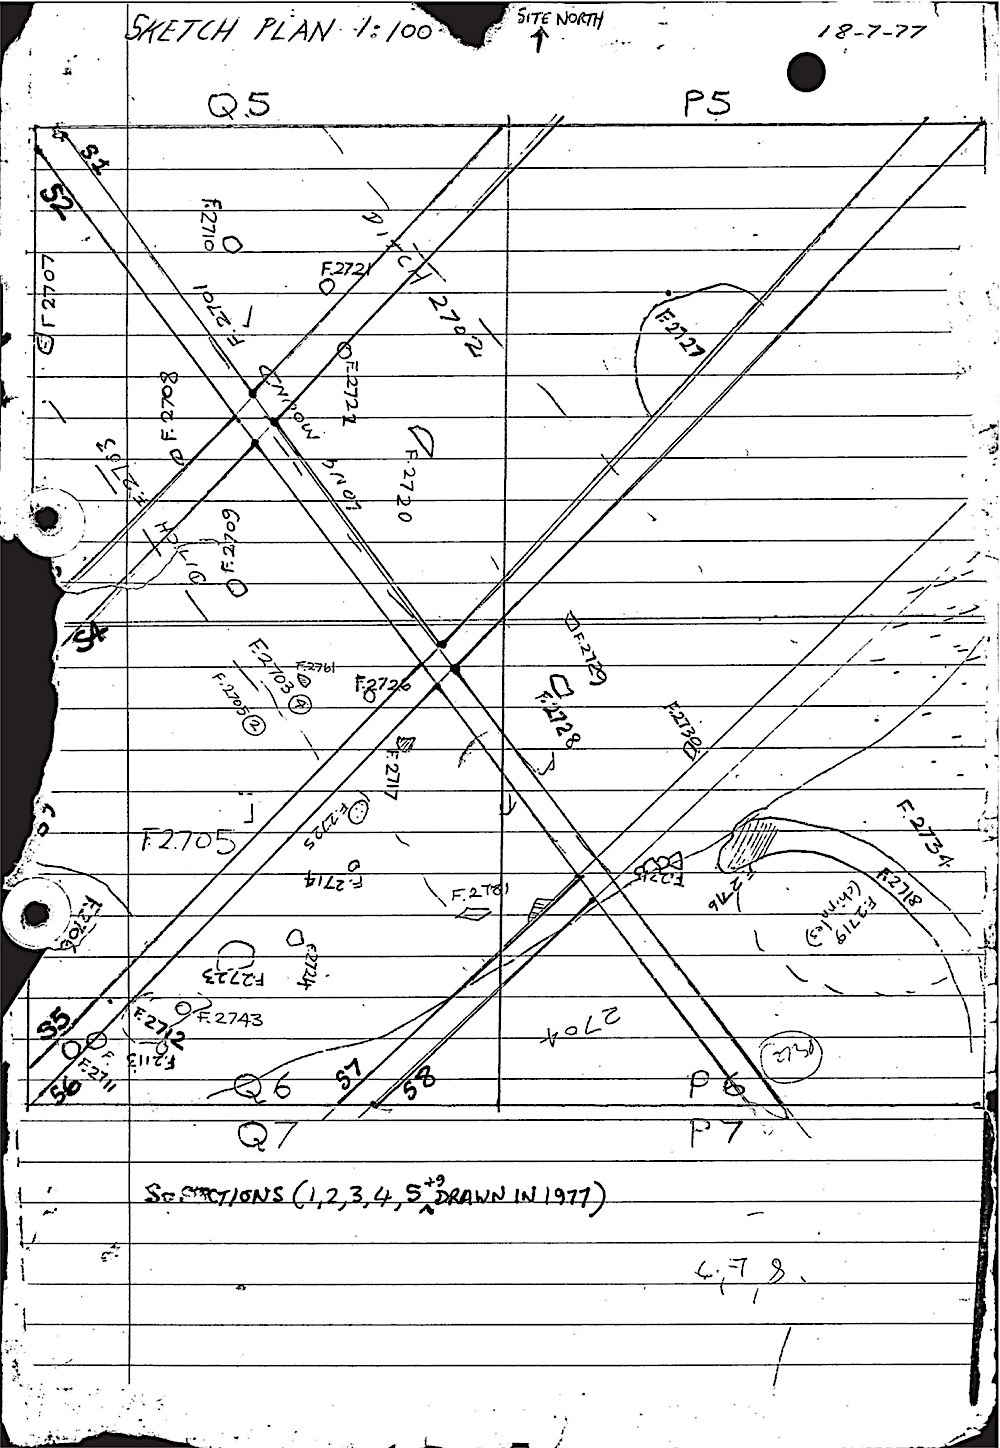 SKETCH PLAN 1:100
SITE NORTH
18-7-77
Q.5
P5
S1
S2
F.2710
F.2721
DITCH 2702
F.2707
F.2701
F.2727
F.2722
F.2708
LONG MOUND
F.2720
F.2703
DITCH
F.2709
S4
F.2729
F.2703 4
F.2761
F.2726
F.2705 2
F.2728
F.2730
F.2717
F.2725
F.2705
F.2734
F.2714
F.2715
F.2716
F.2718
F.2781
F.2719
F.2706
F.2723
F.2724
2704
S5
F.2712
F.2743
F.
F.2113
F.2711
S6
Q6
S7
S8
P6
Q7
P7
SECTIONS (1,2,3,4,5 +9 DRAWN IN 1977)